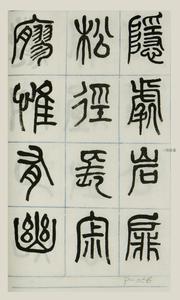 隱處岩扉
松徑長寂
寥惟有幽